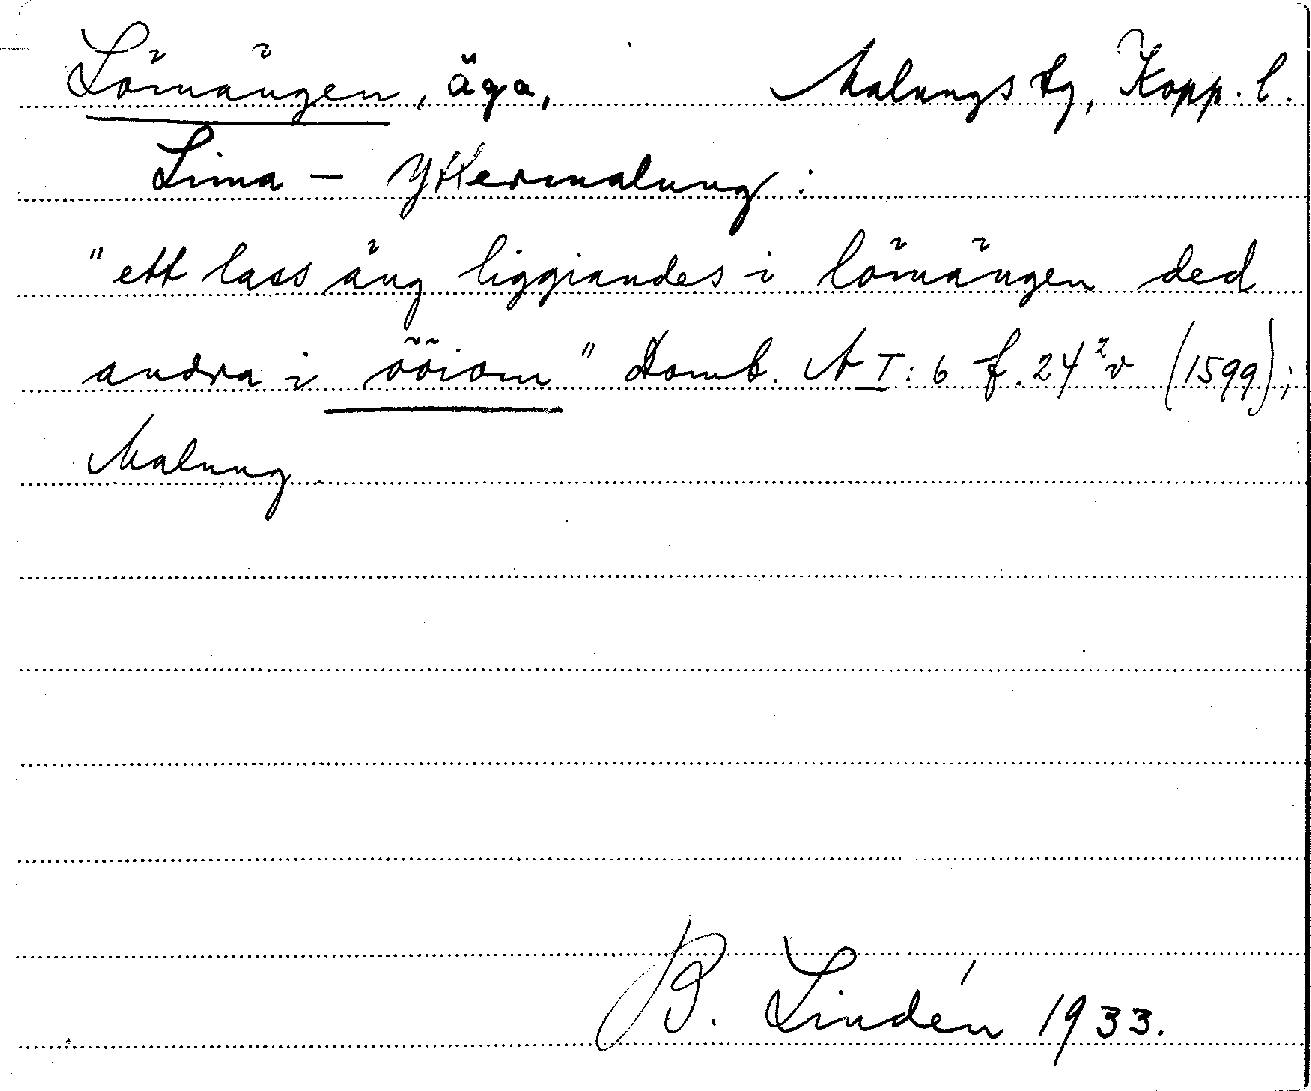 Lömängen, äga, Malungs tg, Kopp. l.
Lima - Yttermalung:
"ett lass äng liggiandes i lömängen ded
andra i ööiom" Domb. A I: 6 f. 24² v (1599);
Malung
B. Lindén 1933.